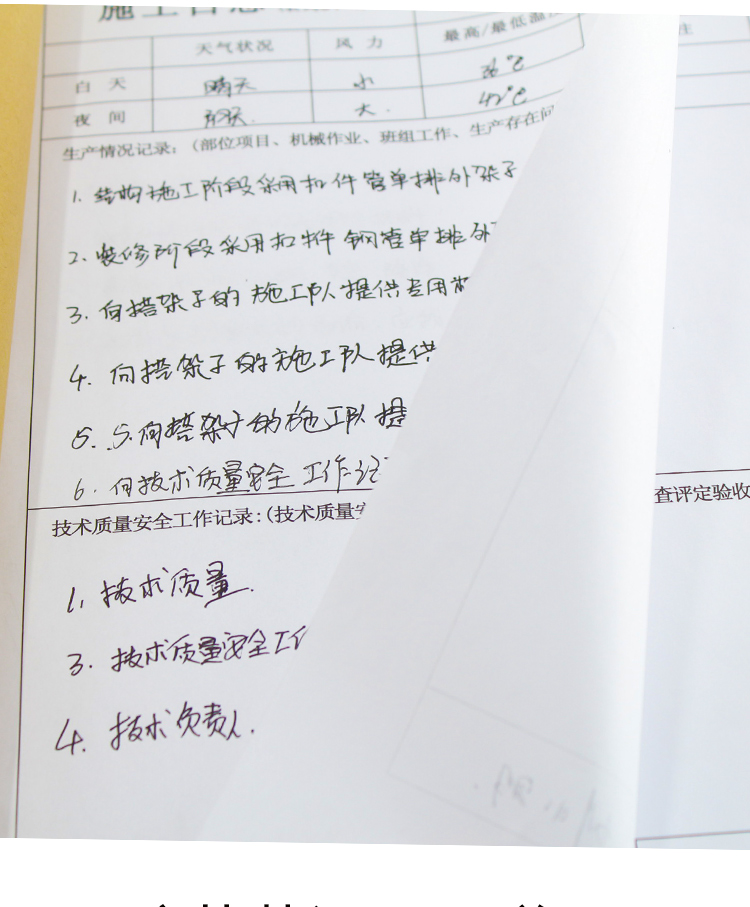 施工日志
天气状况 风力 最高/最低温
白天 晴天 小 36℃
夜间 大. 42℃
生产情况记录:(部位项目、机械作业、班组工作、生产存在问
1. 结构施工阶段采用扣件管单排外架子
2. 装修阶段采用扣件钢管单排外
3. 向搭架子的施工队提供专用
4. 向搭架子的施工队提供
5. 5.向搭架子的施工队提
6. 向技术质量安全工作记
技术质量安全工作记录:(技术质量安
查评定验收
1. 技术质量.
3. 技术质量安全工作
4. 技术负责人.